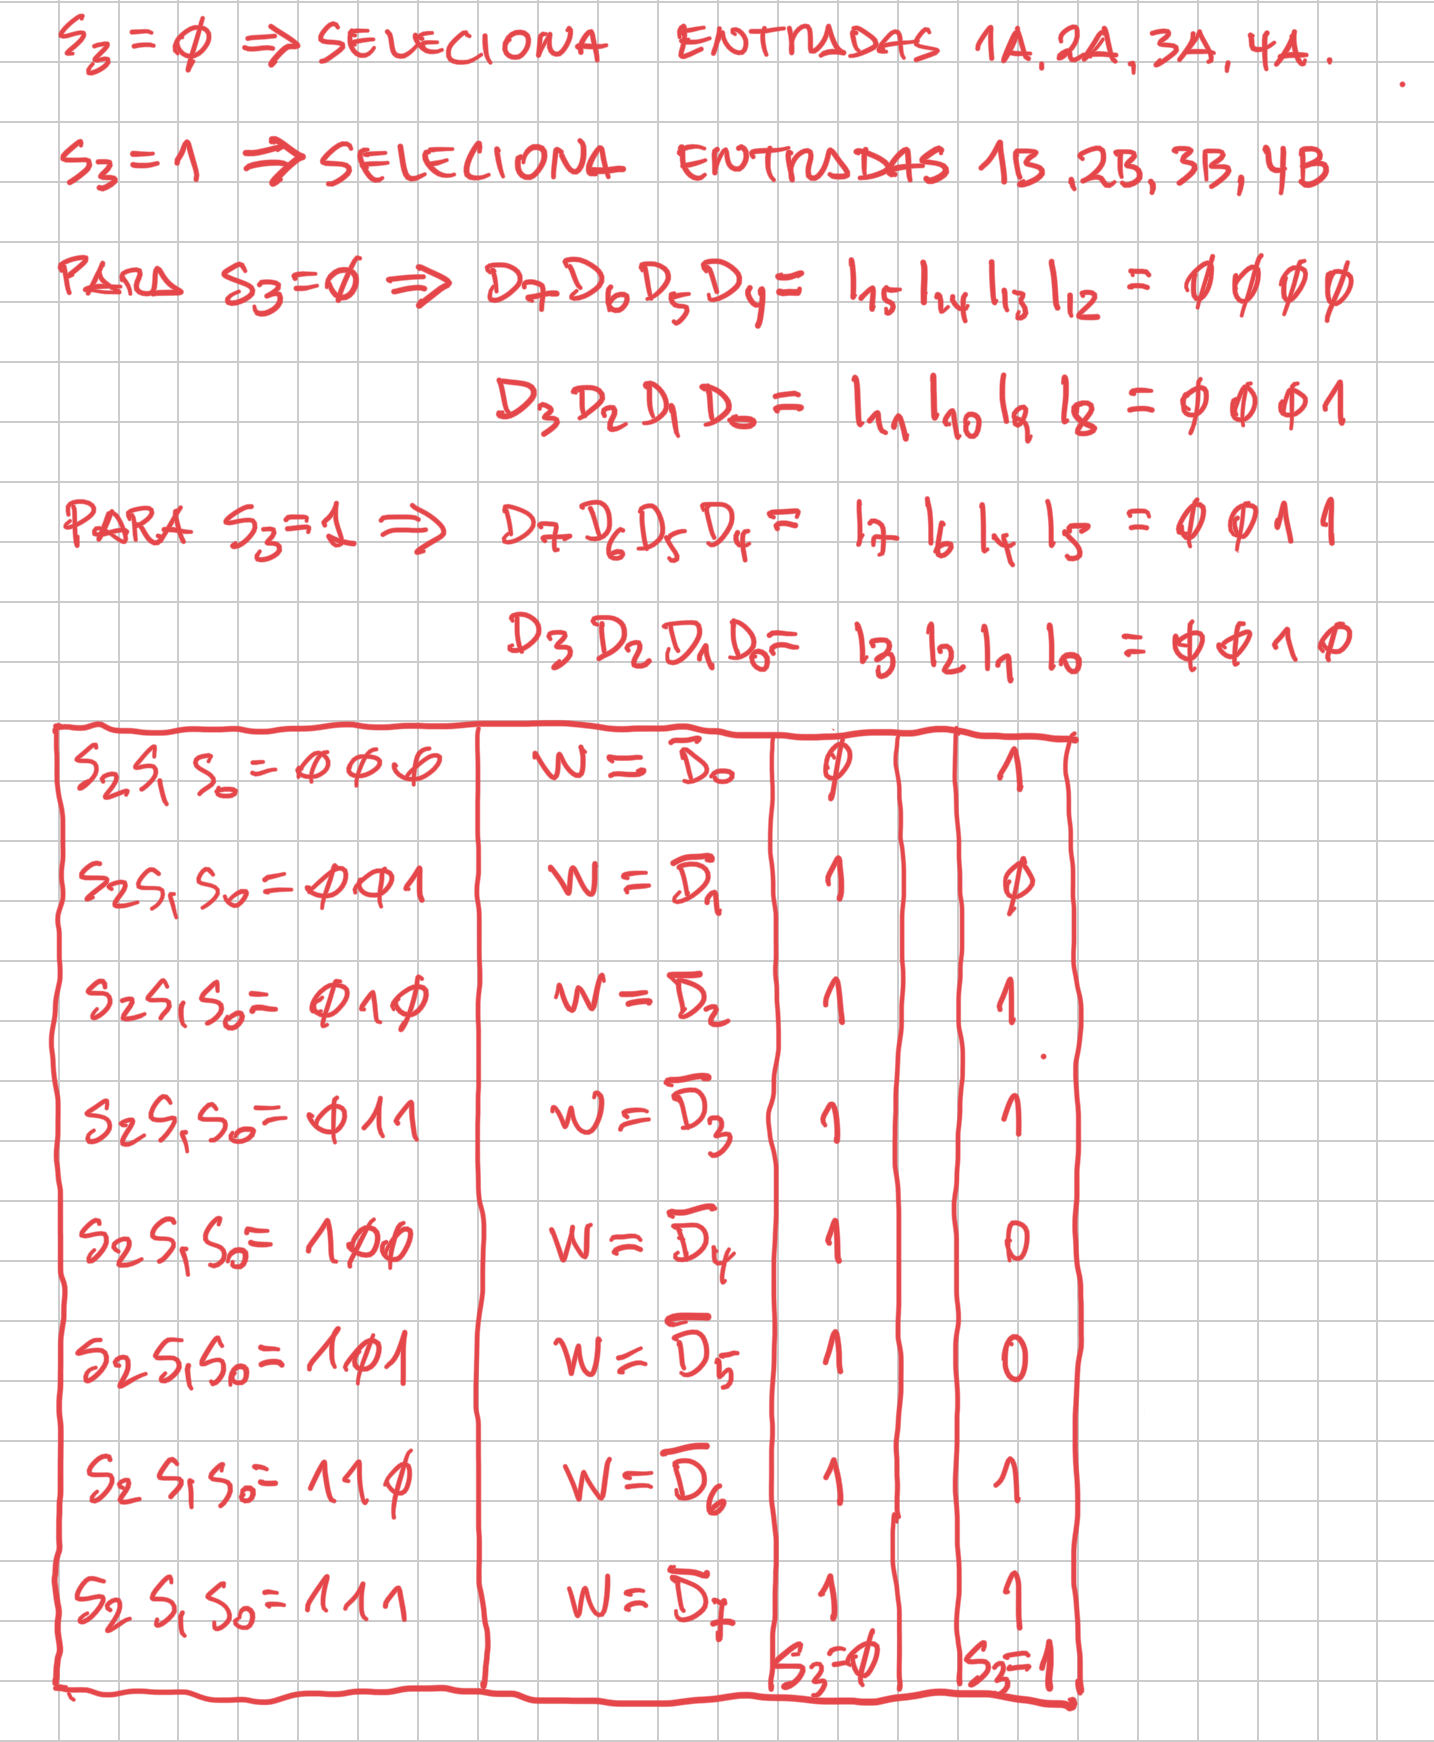 S₃ = ϕ ⇒ SELECIONA ENTRADAS 1A, 2A, 3A, 4A.
S₃ = 1 ⇒ SELECIONA ENTRADAS 1B, 2B, 3B, 4B
PARA S₃ = ϕ ⇒ D₇ D₆ D₅ D₄ = I₁₅ I₁₄ I₁₃ I₁₂ = ϕ ϕ ϕ ϕ
D₃ D₂ D₁ D₀ = I₁₁ I₁₀ I₉ I₈ = ϕ ϕ ϕ 1
PARA S₃ = 1 ⇒ D₇ D₆ D₅ D₄ = I₇ I₆ I₄ I₅ = ϕ ϕ 1 1
D₃ D₂ D₁ D₀ = I₃ I₂ I₁ I₀ = ϕ ϕ 1 ϕ
S₂ S₁ S₀ = ϕ ϕ ϕ W = D̅₀ ϕ 1
S₂ S₁ S₀ = ϕ ϕ 1 W = D̅₁ 1 ϕ
S₂ S₁ S₀ = ϕ 1 ϕ W = D̅₂ 1 1
S₂ S₁ S₀ = ϕ 1 1 W = D̅₃ 1 1
S₂ S₁ S₀ = 1 ϕ ϕ W = D̅₄ 1 0
S₂ S₁ S₀ = 1 ϕ 1 W = D̅₅ 1 0
S₂ S₁ S₀ = 1 1 ϕ W = D̅₆ 1 1
S₂ S₁ S₀ = 1 1 1 W = D̅₇ 1 1
S₃ = ϕ S₃ = 1